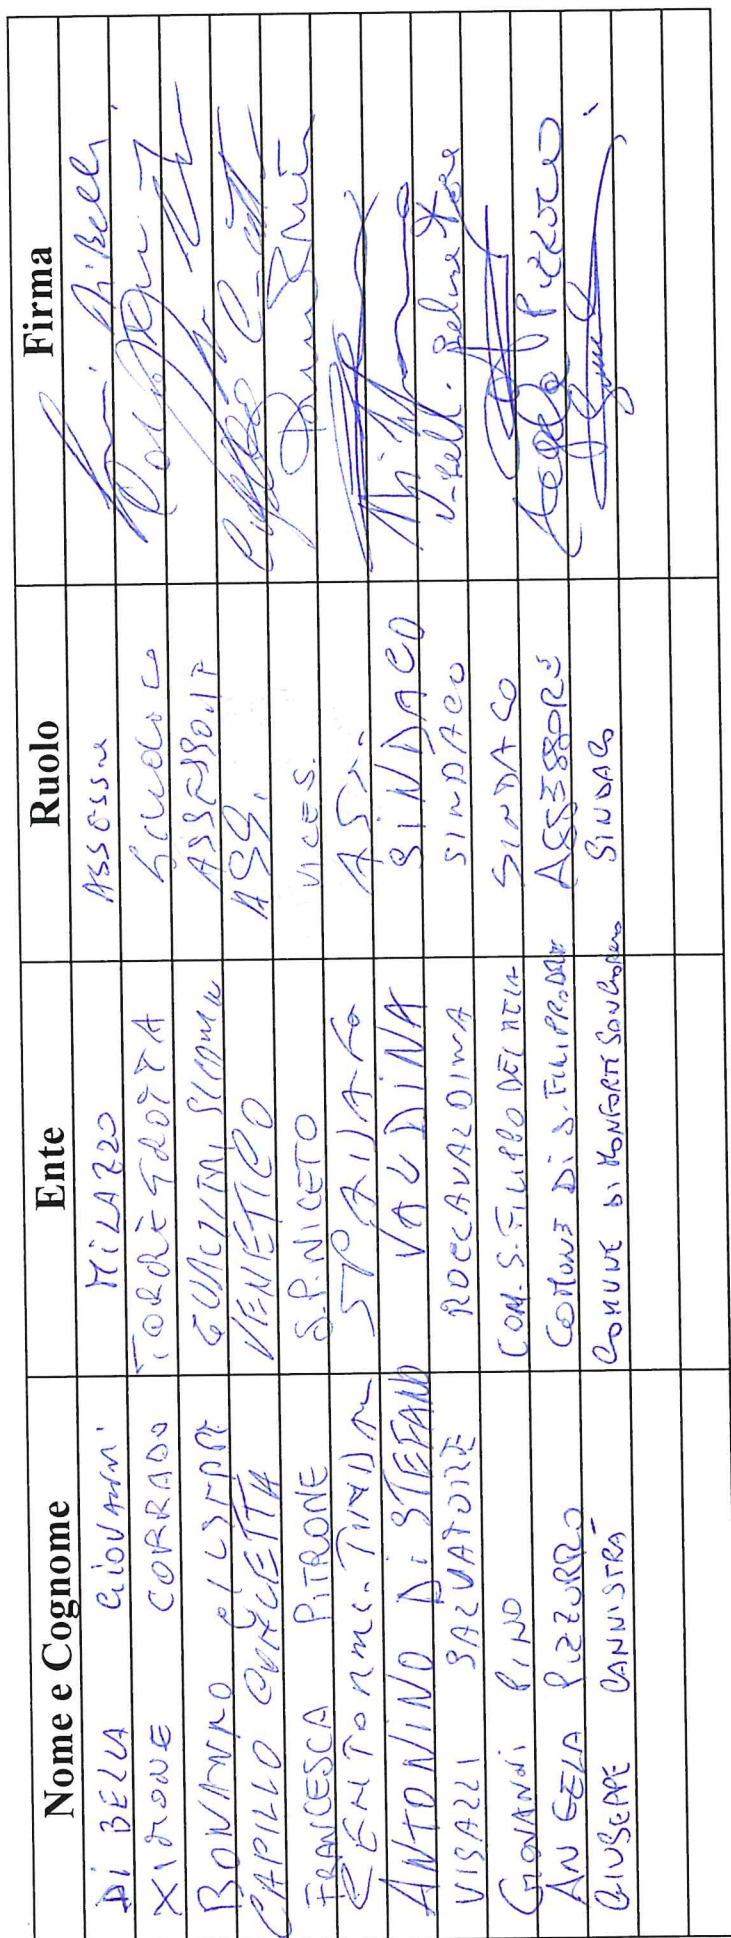 Nome e Cognome Ente Ruolo Firma
Di BELLA Giovanni MILAZZO ASSESSORE
XIMONE CORRADO TORREGROTTA Sindaco
BONANNO GUALTIERI SICAMINO' ASSESSORE
CAPILLO CONCETTA VENETICO ASS.
FRANCESCA PITRONE S.P. NICETO VICE S.
SPADAFORA ASS.
ANTONINO Di STEFANO VALDINA SINDACO
VISALLI SALVATORE ROCCAVALDINA SINDACO Visalli Salvatore
GIOVANNI PINO COM. S. FILIPPO DEL MELA SINDACO
ANGELA PIZZURRO COMUNE Di S. FILIPPO DEL ASSESSORE Angela Pizzurro
GIUSEPPE CANNISTRÀ COMUNE DI MONFORTE SAN GIORGIO SINDACO